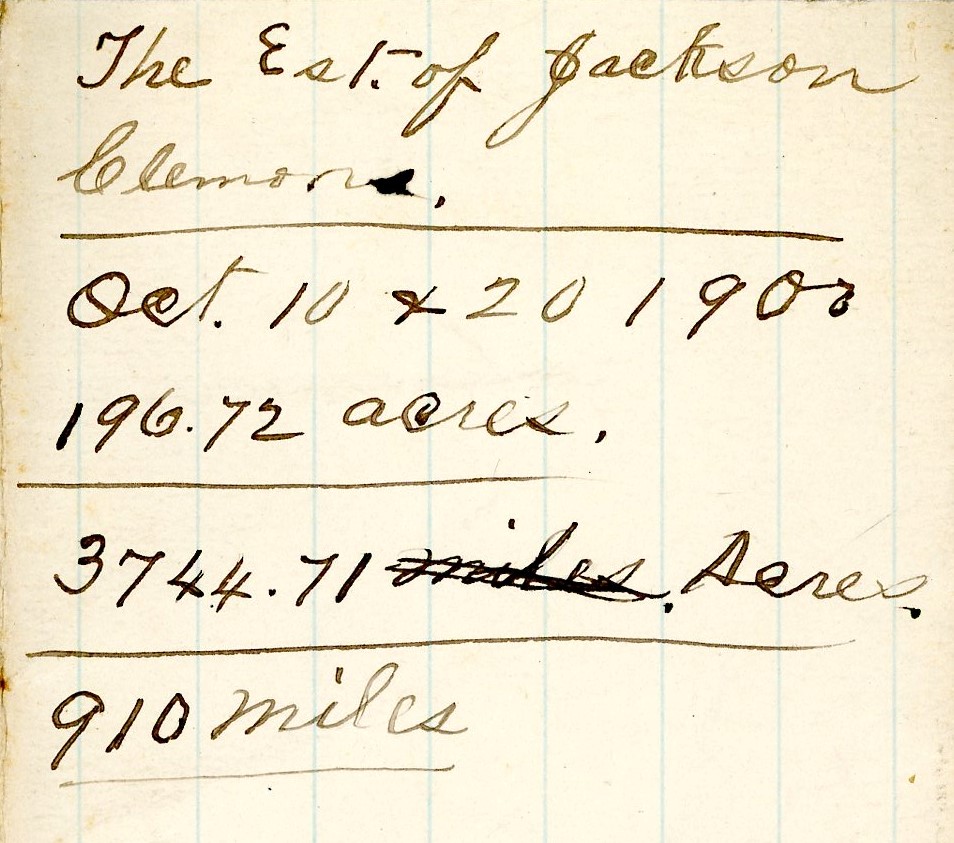 The Est. of Jackson
Clemons.
Oct. 10 & 20 1900
196.72 acres.
3744.71 miles. Acres.
910 miles